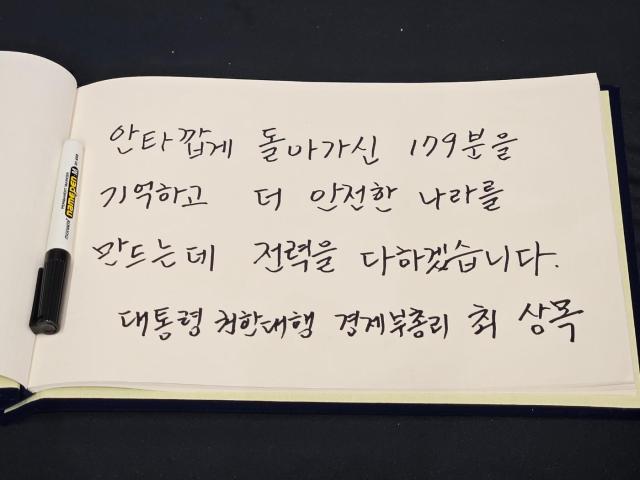 안타깝게 돌아가신 179분을
기억하고 더 안전한 나라를
만드는데 전력을 다하겠습니다.
대통령 권한대행 경제부총리 최 상목
namepen